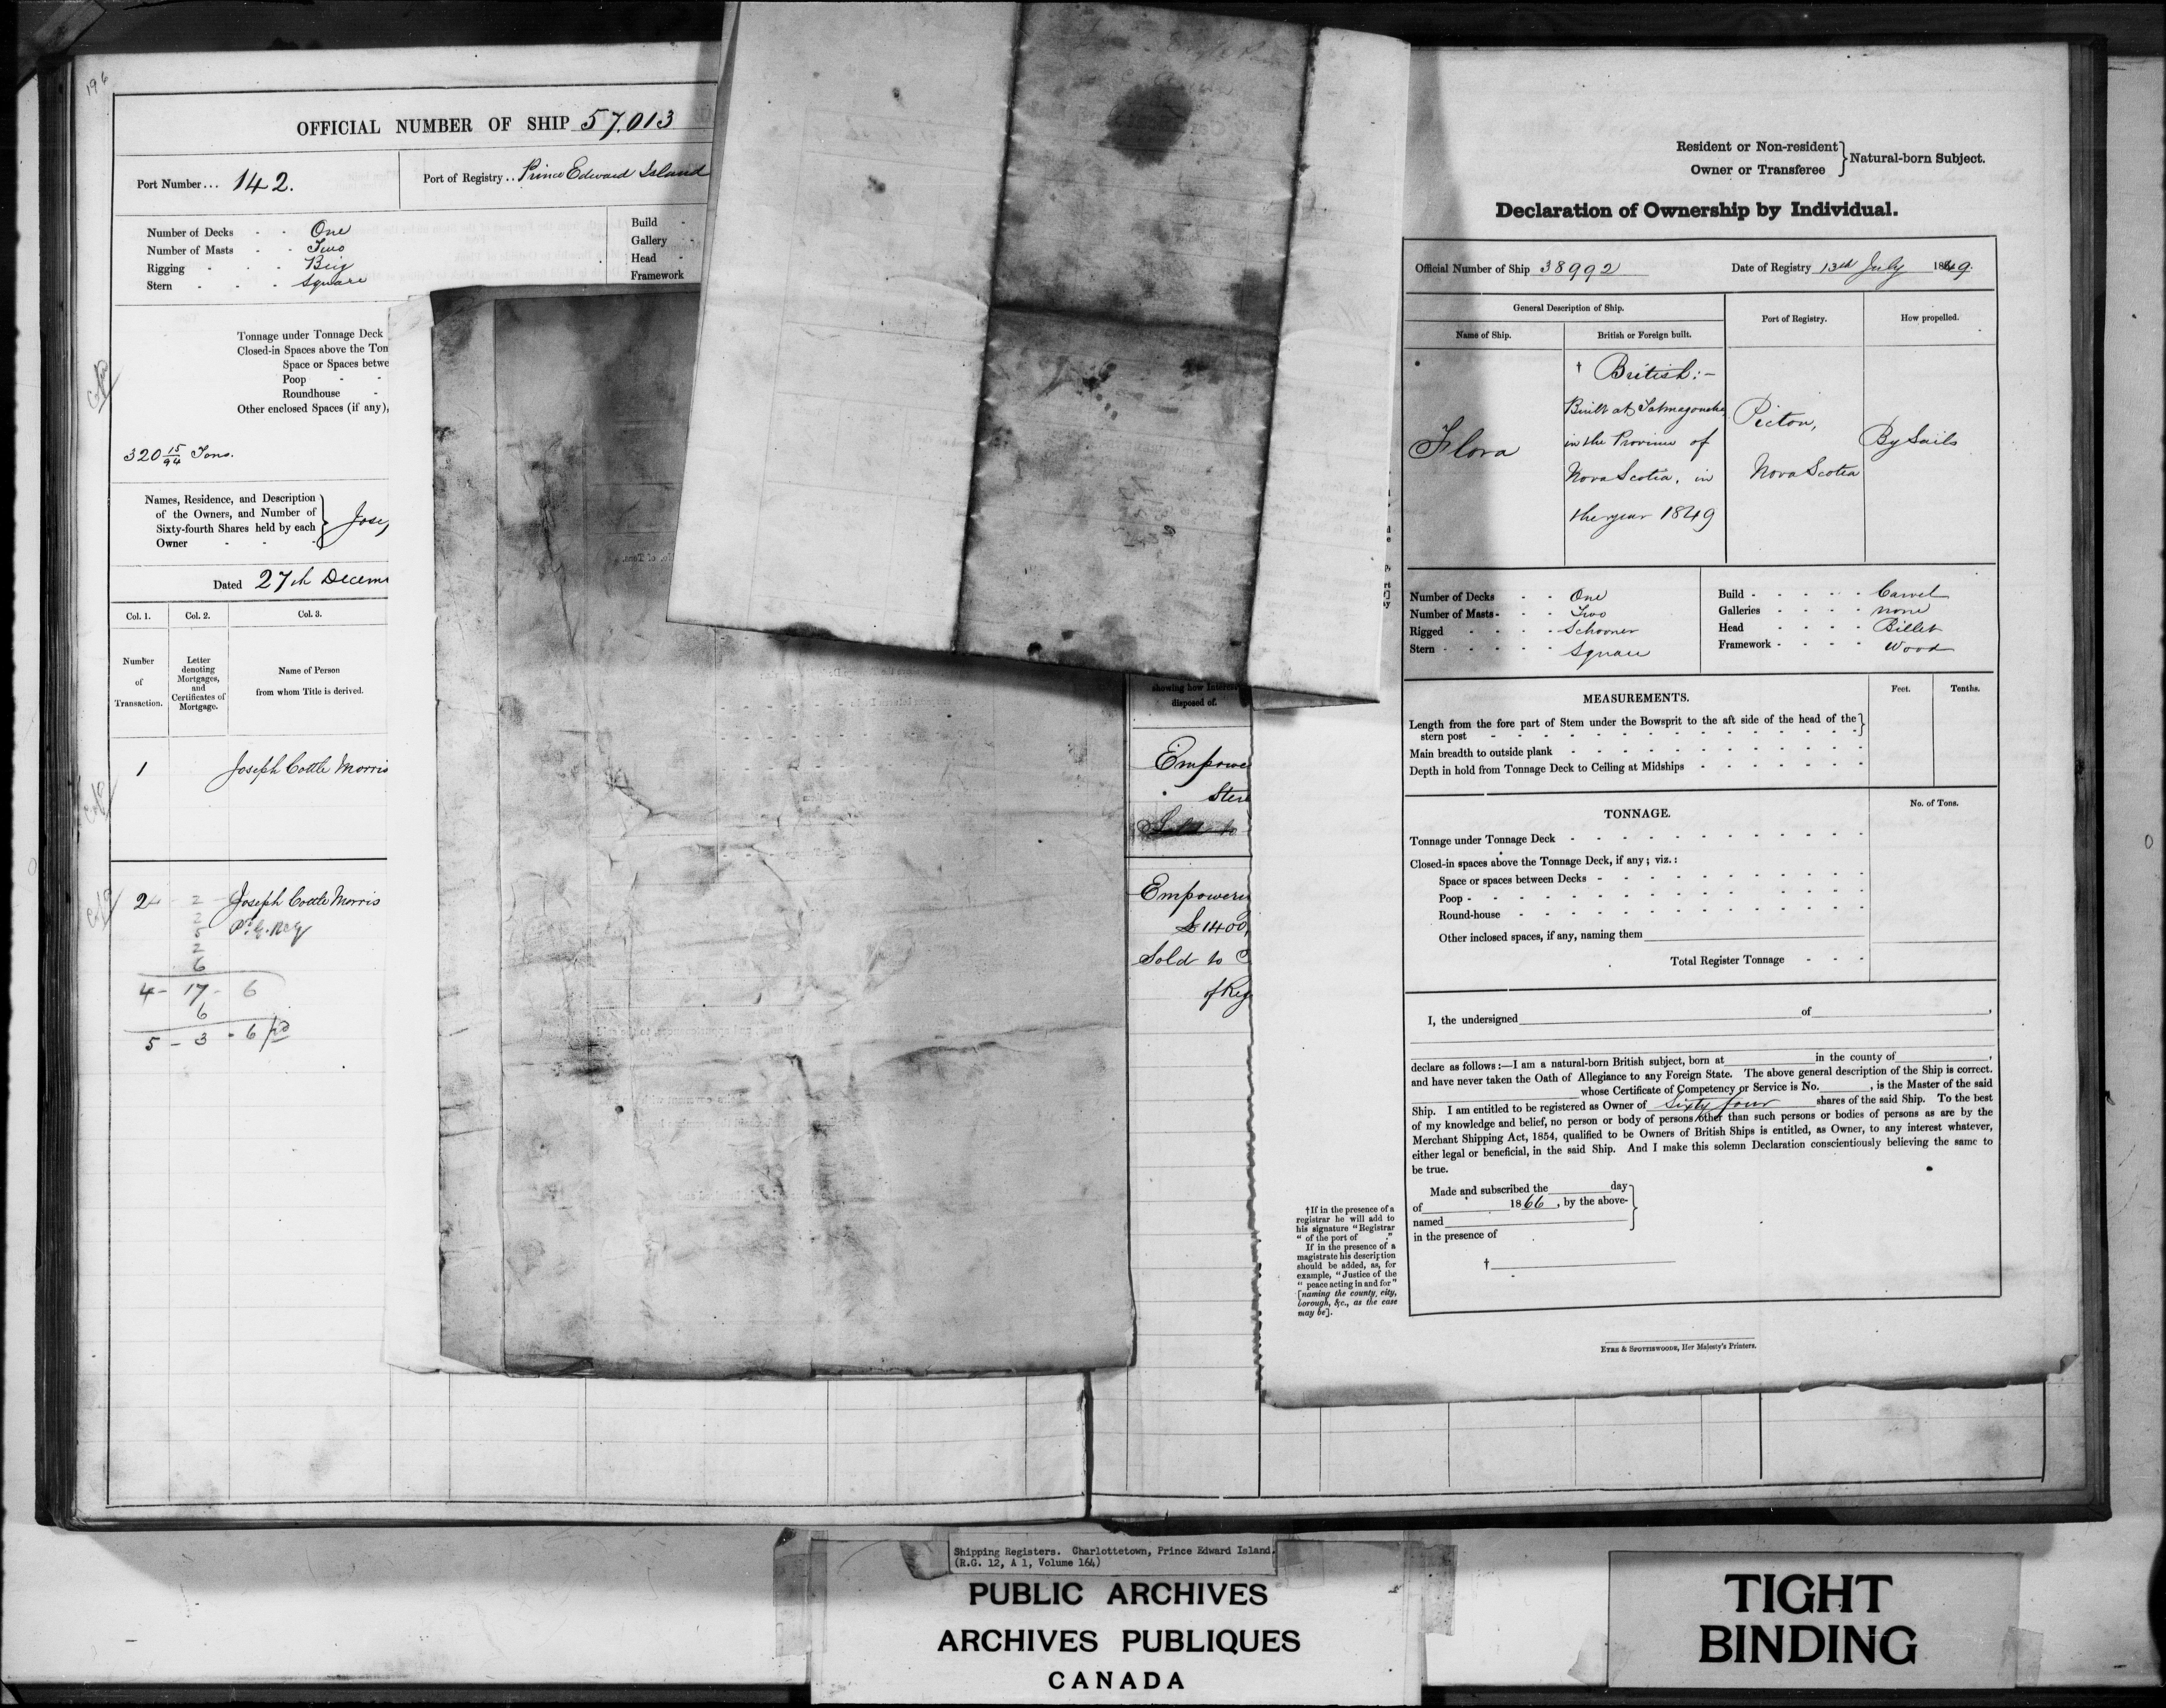 196
OFFICIAL NUMBER OF SHIP 57,013
Port Number... 142.
Port of Registry.. Prince Edward Island
Number of Decks - - One
Number of Masts - - Two
Rigging - - - Brig
Stern - - - Square
Build -
Gallery -
Head -
Framework
Tonnage under Tonnage Deck
Closed-in Spaces above the Ton
Space or Spaces betwe
Poop - -
Roundhouse -
Other enclosed Spaces (if any),
320 15/94 Tons.
Names, Residence, and Description
of the Owners, and Number of
Sixty-fourth Shares held by each
Owner - - -
Jose
Dated 27th Decem
Col. 1. Col. 2. Col. 3.
Number of Transaction.
Letter denoting Mortgages, and Certificates of Mortgage.
Name of Person from whom Title is derived.
1 Joseph Cottle Morris
2 Joseph Cottle Morris
2
2
5
2
6
4 - 17 - 6
6
5 - 3 - 6
showing how Interest
disposed of.
Empowe
Sold to
Empowere
£1400,
Sold to
of Reg
Resident or Non-resident
Owner or Transferee
Natural-born Subject.
Declaration of Ownership by Individual.
Official Number of Ship 38992
Date of Registry 13th July 1849.
General Description of Ship.
Port of Registry.
How propelled.
Name of Ship.
British or Foreign built.
Flora
† British:-
Built at Tatmagouche
in the Province of
Nova Scotia, in
the year 1849
Pictou,
Nova Scotia
By Sails
Number of Decks - - One
Number of Masts - - - Two
Rigged - - - - Schooner
Stern - - - - - Square
Build - - - - - Carvel
Galleries - - - - none
Head - - - - Billet
Framework - - - - Wood
MEASUREMENTS.
Feet.
Tenths.
Length from the fore part of Stem under the Bowsprit to the aft side of the head of the
stern post
Main breadth to outside plank
Depth in hold from Tonnage Deck to Ceiling at Midships
TONNAGE.
No. of Tons.
Tonnage under Tonnage Deck
Closed-in spaces above the Tonnage Deck, if any; viz.:
Space or spaces between Decks
Poop
Round-house
Other inclosed spaces, if any, naming them
Total Register Tonnage
I, the undersigned of ,
declare as follows:—I am a natural-born British subject, born at in the county of ,
and have never taken the Oath of Allegiance to any Foreign State. The above general description of the Ship is correct.
whose Certificate of Competency or Service is No. , is the Master of the said
Ship. I am entitled to be registered as Owner of Sixty four shares of the said Ship. To the best
of my knowledge and belief, no person or body of persons other than such persons or bodies of persons as are by the
Merchant Shipping Act, 1854, qualified to be Owners of British Ships is entitled, as Owner, to any interest whatever,
either legal or beneficial, in the said Ship. And I make this solemn Declaration conscientiously believing the same to
be true.
Made and subscribed the day
of 1866, by the above-
named
in the presence of
†
†If in the presence of a
registrar he will add to
his signature "Registrar
" of the port of ."
If in the presence of a
magistrate his description
should be added, as, for
example, "Justice of the
" peace acting in and for"
[naming the county, city,
borough, &c., as the case
may be].
EYRE & SPOTTISWOODE, Her Majesty's Printers.
Shipping Registers. Charlottetown, Prince Edward Island.
(R.G. 12, A 1, Volume 164)
PUBLIC ARCHIVES
ARCHIVES PUBLIQUES
CANADA
TIGHT
BINDING